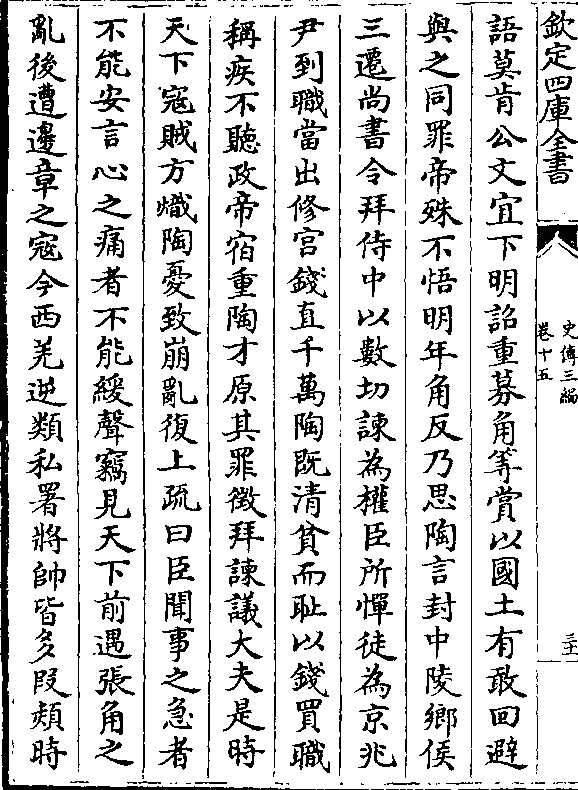 欽定四庫全書
史傳三編
卷十五
語莫肯公文宜下明詔重募角等賞以國土有敢回避
與之同罪帝殊不悟明年角反乃思陶言封中陵鄉侯
三遷尚書令拜侍中以數切諫為權臣所憚徒為京兆
尹到職當出修宫錢直千萬陶既清貧而耻以錢買職
稱疾不聽政帝宿重陶才原其罪徴拜諫議大夫是時
天下寇賊方熾陶憂致崩亂復上疏曰臣聞事之急者
不能安言心之痛者不能緩聲竊見天下前遇張角之
亂後遭邊章之寇今西羌逆類私署將帥皆多段熲時